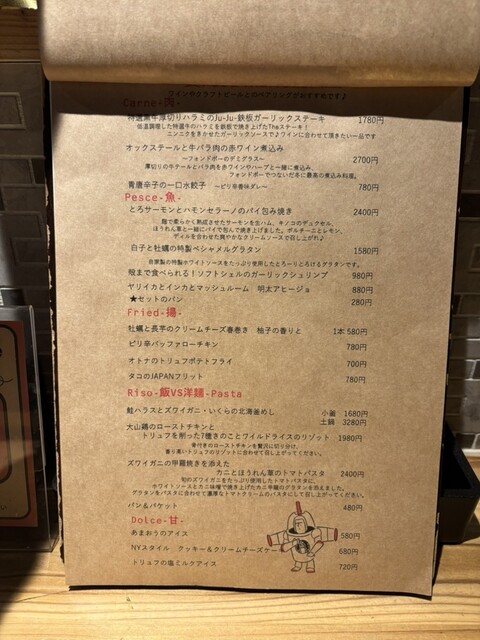 ワインやクラフトビールとのペアリングがおすすめです♪
Carne-肉-
特選黒牛厚切りハラミのJu-Ju-鉄板ガーリックステーキ 1780円
低温調理した特選牛のハラミを鉄板で焼き上げたTheステーキ!
ニンニクをきかせたガーリックソースで♪ワインに合わせて頂きたい一品です
オックステールと牛バラ肉の赤ワイン煮込み
~フォンドボーのデミグラス~ 2700円
厚切りの牛テールとバラ肉を赤ワインやハーブと一緒に煮込み、
フォンドボーでつないだ冬に最高の煮込み料理。
青唐辛子の一口水餃子 ~ピリ辛香味ダレ~ 780円
Pesce-魚-
とろサーモンとハモンセラーノのパイ包み焼き 2400円
麹で柔らかく熟成させたサーモンを生ハム、キノコのデュクセル、
ほうれん草と一緒にパイで包んで焼き上げました。ポルチーニとレモン、
ディルを合わせた爽やかなクリームソースで召し上がれ♪
白子と牡蠣の特製ベシャメルグラタン 1580円
自家製の特製ホワイトソースをたっぷり使用したとろーりとろけるグラタンです。
殻まで食べられる!ソフトシェルのガーリックシュリンプ 980円
ヤリイカとインカとマッシュルーム 明太アヒージョ 880円
★セットのパン 280円
Fried-揚-
牡蠣と長芋のクリームチーズ春巻き 柚子の香りと 1本 580円
ピリ辛バッファローチキン 780円
オトナのトリュフポテトフライ 700円
タコのJAPANフリット 780円
Riso-飯VS洋麺-Pasta
鮭ハラスとズワイガニ・いくらの北海釜めし 小釜 1680円
土鍋 3280円
大山鶏のローストチキンと
トリュフを削った7種きのことワイルドライスのリゾット 1980円
骨付きのローストチキンを贅沢に切り分け、
香り高いトリュフのリゾットに合わせて召し上がってください。
ズワイガニの甲羅焼きを添えた
カニとほうれん草のトマトパスタ 2400円
旬のズワイガニをたっぷり使用したトマトパスタに、
ホワイトソースとカニ味噌で焼き上げたカニ甲羅のグラタンを添えました。
グラタンをパスタに合わせて濃厚なトマトクリームのパスタにして召し上がってください。
パン&バケット 480円
Dolce-甘-
あまおうのアイス 580円
NYスタイル クッキー&クリームチーズケーキ 680円
トリュフの塩ミルクアイス 720円